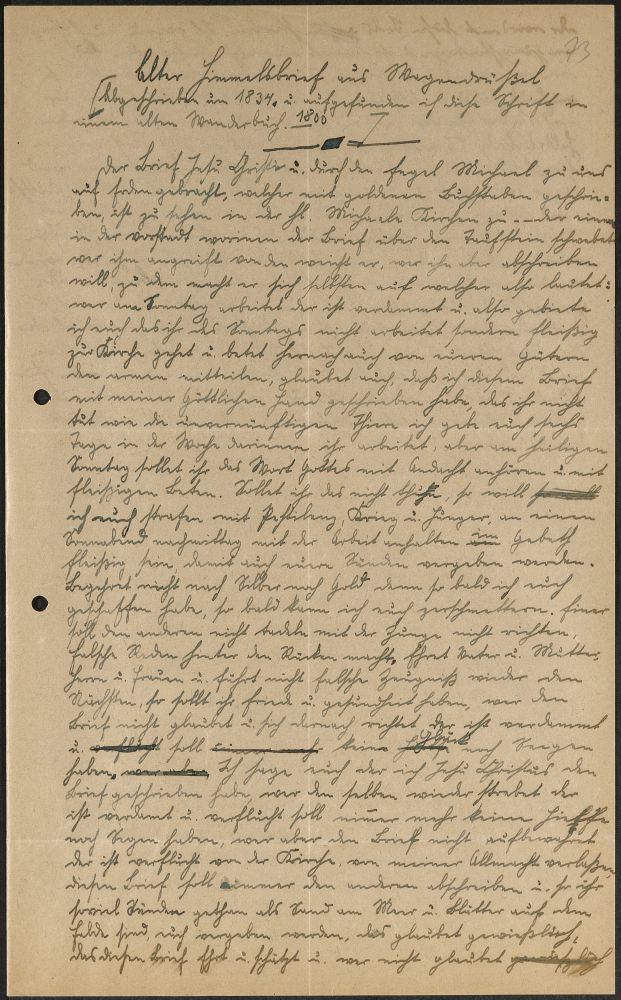 73
Alter Himmelsbrief aus Wagendrüßel
[Abgeschrieben un 1834. u. aufgefunden ist diese Schrift in
einem alten Wanderbuch. 1800
Der Brief Jesu Christi u. durch den Engel Michael zu uns
auf Erden gebracht, welcher mit goldenen Buchstaben geschrie=
ben, ist zu sehen in der hl. Michaels Kirchen zu - - der einen
in der Vorstadt worinnen der Brief über den Taufstein schwebet
wer ihn angreift von den weicht er, wer ihn aber abschreiben
will, zu dem macht er sich selbsten auf welcher also lautet:
wer am Sonntag arbeitet der ist verdammt u. also gebiete
ich euch das ihr des Sonntags nicht arbeitet sondern fleißig
zur Kirche gehet u. betet hernach auch von eueren Gütern
den armen mitteilen, glaubet auch, daß ich diesem Brief
mit meiner Göttlichen Hand geschrieben habe, das ihr nicht
tut wie die unvernünftigen Thiere ich gebe euch sechs
Tage in der Woche darinnen ihr arbeitet, aber am heiligen
Sonntag sollet ihr das Wort Gottes mit Andacht anhören u. mit
fleißigen Beten. Sollet ihr das nicht thuhn, so will
ich euch strafen mit Pestilenz, Krieg u. Hunger, an einem
Sonnabend nachmittag mit der Arbeit anhalten im Gebeth
fleißig sein, damit euch euere Sünden vergeben werden.
Begehret nicht nach Silber noch Gold denn so bald ich euch
geschaffen habe, so bald kann ich euch zerschmettern. Einer
soll den anderen nicht tadeln mit der Zunge nicht richten,
falsche Reden hinter den Rücken macht, Ehret Vater u. Mutter,
Herrn u. Frauen u. führt nicht falsche Zeugniß wieder den
Nächsten, so sollt ihr Friede u. gesundheit haben, wer den
Brief nicht glaubet u. sich darnach richtet der ist verdammt
u. soll keine Glück noch Seegen
haben, Ich sage euch der ich Jesu Christus den
Brief geschrieben habe, wer den selben wieder strebet der
ist verdamt u. verflucht soll nimmer mehr keine Hielffe
noch Segen haben, wer aber den Brief nicht aufbewahret
der ist verflucht von der Kirche, von meiner Allmacht verlaßen,
diesen Brief soll immer den anderen abschreiben u. so ihr
soviel Sünden gethan als Sand am Meer u. Blätter auf dem
Felde sind, euch vergeben werden, das glaubet gewießlich,
das diesen Brief Ehrt u. schätzt u. wer nicht glaubet